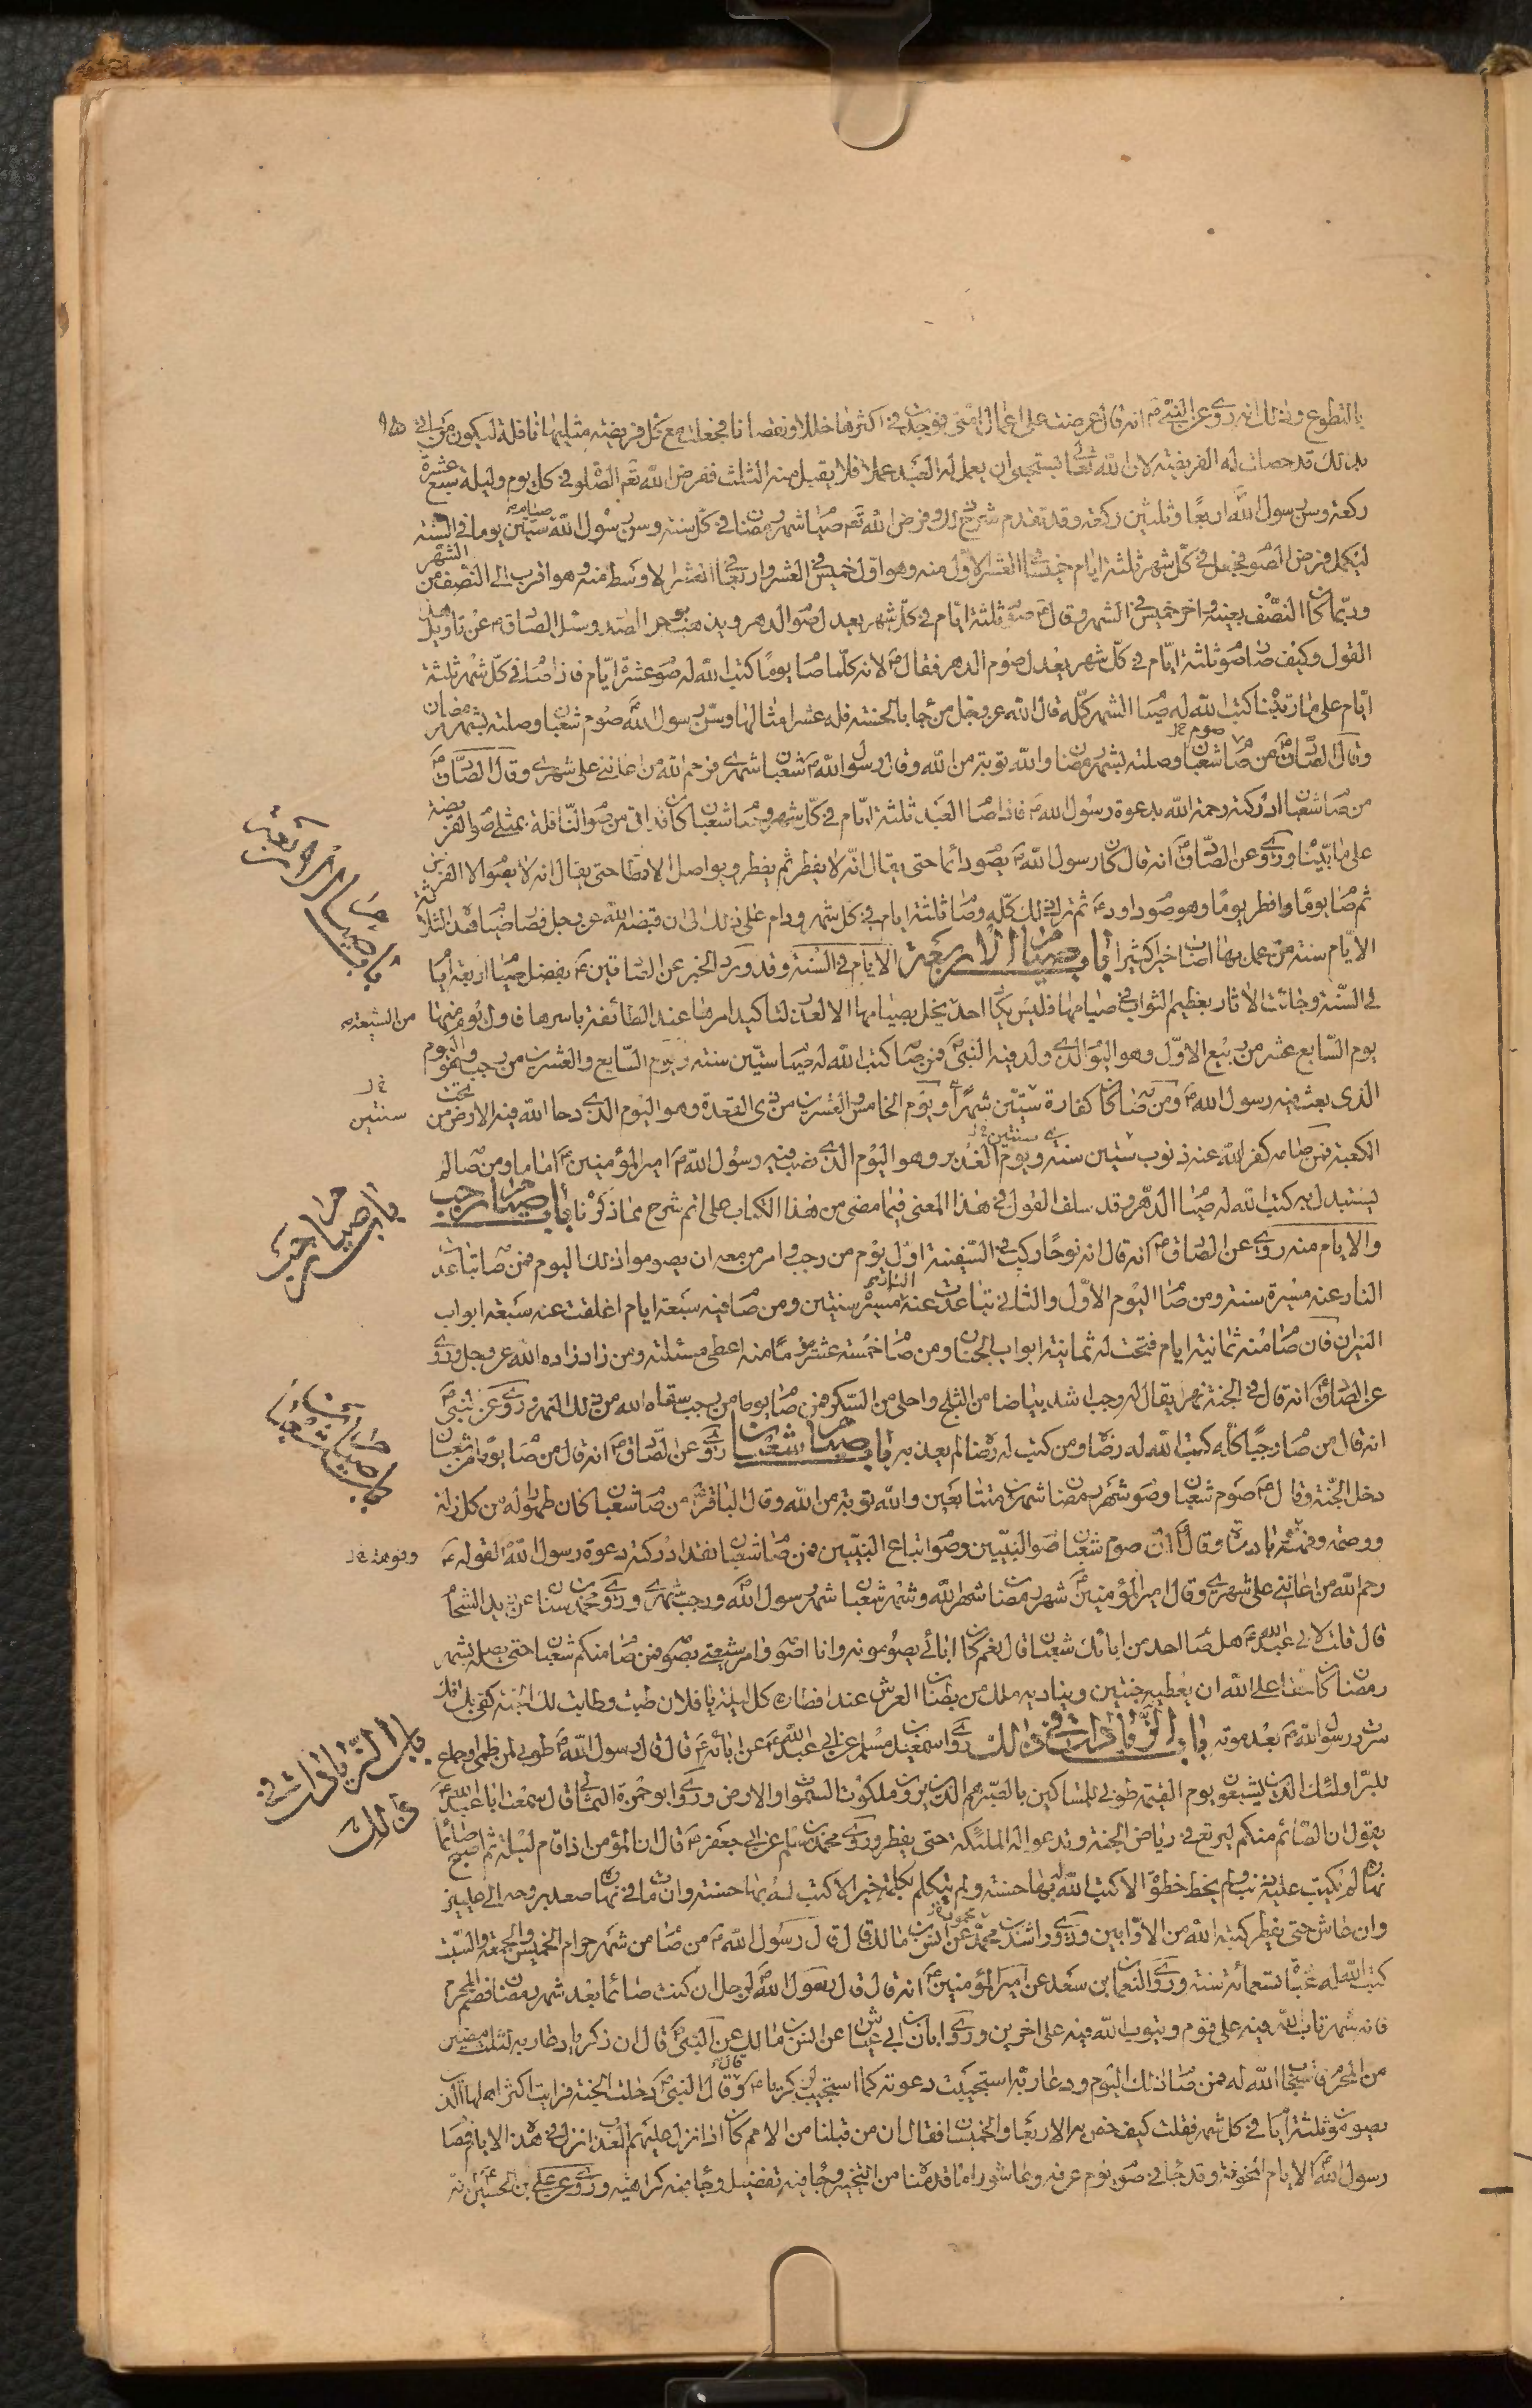 بالتطوع وذلك انه روى عن النبي ص انه قال عرضت على اعمال امتى فوجدت فى اكثرها خللا ونقصانا فجعلت مع كل فريضة مثليها نافلة ليكون من اتى
بذلك قد حصلت له الفريضة لان الله تعالى يستحيى ان يعمل له العبد عملا فلا يقبل منه الثلث ففرض الله تعم الصلوة فى كل يوم وليلة سبع عشرة
ركعة وسن رسول الله اربعا وثلثين ركعة وقد تقدم شرح ذلك وفرض الله تعم صيام شهر رمضان فى كل سنة وسن رسول الله صيام ستين يوما فى السنة
ليكمل فرض الصوم فجعل فى كل شهر ثلثة ايام خميسا فى العشر الاول منه وهو اول خميس فى العشر واربعا فى العشر الاوسط منه وهو اقرب الى النصف من الشهر
وربما كان النصف بعينه واخر خميس فى الشهر وقال ص صوم ثلثة ايام فى كل شهر يعدل صوم الدهر ويذهبن بوحر الصدر وسئل الصادق ع عن تاويل هذا
القول وكيف صار صوم ثلثة ايام فى كل شهر يعدل صوم الدهر فقال ع لانه كلما صام يوما كتب الله له صوم عشرة ايام فاذا صام فى كل شهر ثلثة
ايام على ما رتبنا كتب الله له صيام الشهر كله قال الله عز وجل من جاء بالحسنة فله عشر امثالها وسن رسول الله صوم شعبان وصلته بشهر رمضان
وقال الصادق ع من صام شعبان وصلته بشهر رمضان والله توبة من الله وقال رسول الله ص شعبان شهرى فرحم الله من اعاننى على شهرى وقال الصادق ع
من صام شعبان ادركته رحمة الله بدعوة رسول الله ص فاذا صام العبد ثلثة ايام فى كل شهر وصام شعبان كان قد اتى من صوم النافلة بمثلى صوم الفريضة
على ما بيناه وروى عن الصادق ع انه قال كان رسول الله ص يصوم دائما حتى يقال انه لا يفطر ثم يفطر ويواصل الافطار حتى يقال انه لا يصوم الا الفرض
ثم صام يوما وافطر يوما وهو صوم داود ع ثم ترك ذلك كله وصام ثلثة ايام فى كل شهر ودام على ذلك الى ان قبضه الله عز وجل فصار صيام هذه الثلثة
الايام سنة من عمل بها اصاب خيرا كثيرا باب صيام الاربعة الايام فى السنة وقد ورد الخبر عن الصادقين ع بفضل صيام اربعة ايام
فى السنة وجائت الاثار بعظيم الثواب فى صيامها فليس يكاد احد يخل بصيامها الا لعذر لتاكيد امرها عند الطائفة باسرها فاول يوم منها
يوم السابع عشر من ربيع الاول وهو اليوم الذى ولد فيه النبى ص فمن صامه كتب الله له صيام ستين سنة ويوم السابع والعشرين من رجب وهو اليوم
الذى بعث فيه رسول الله ص ومن صامه كان كفارة ستين شهرا ويوم الخامس والعشرين من ذى القعدة وهو اليوم الذى دحا الله فيه الارض من تحت
الكعبة فمن صامه كفر الله عنه ذنوب ستين سنة ويوم الغدير وهو اليوم الذى نصب فيه رسول الله ص امير المؤمنين ع اماما ومن صامه لم
يستبدل به كتب الله له صيام الدهر وقد سلف القول فى هذا المعنى فيما مضى من هذا الكتاب على اتم شرح مما ذكرنا باب صيام رجب
والايام منه روى عن الصادق ع انه قال ان نوحا ركب فى السفينة اول يوم من رجب وامر من معه ان يصوموا ذلك اليوم فمن صامه تباعدت
النار عنه مسيرة سنة ومن صام اليوم الاول والثانى تباعدت عنه النار مسيرة سنتين ومن صام فيه سبعة ايام اغلقت عنه سبعة ابواب
النيران فان صام منه ثمانية ايام فتحت له ثمانية ابواب الجنان ومن صام خمسة عشر يوما منه اعطى مسئلته ومن زاد زاده الله عز وجل وروى
عن الصادق ع انه قال فى الجنة نهر يقال له رجب اشد بياضا من الثلج واحلى من السكر فمن صام يوما من رجب سقاه الله من ذلك النهر وروى عن النبى ص
انه قال من صام رجبا كله كتب الله له رضاه ومن كتب له رضاه لم يعذبه باب صيام شعبان روى عن الصادق ع انه قال من صام يوما من شعبان
دخل الجنة وقال ص صوم شعبان وصوم شهر رمضان شهرين متتابعين والله توبة من الله وقال الباقر ع من صام شعبان كان طهورا له من كل زلة
ووصمة وقال ان صوم شعبان صوم النبيين وصوم اتباع النبيين فمن صام شعبان فقد ادركته دعوة رسول الله لقوله ع
رحم الله من اعاننى على شهرى وقال امير المؤمنين ع شهر رمضان شهر الله وشهر شعبان شهر رسول الله ورجب شهرى وروى محمد بن سنان عن زيد الشحام
قال قلت لابى عبد الله ع هل صام احد من ابائك شعبان قال نعم كان ابائى يصومونه وانا اصومه وامر شيعتى بصومه فمن صام منكم شعبان حتى يصله بشهر
رمضان كان حقا على الله ان يعطيه جنتين ويناديه ملك من بطنان العرش عند افطاره كل ليلة يا فلان طبت وطابت لك الجنة كفى بك انك
سررت رسول الله ص بعد موته باب الزيادات فى ذلك روى اسمعيل بن مسلم عن ابى عبد الله ع عن ابائه ع قال قال رسول الله ص طوبى لمن ظمى او جاع
للبر اولئك الذين يشبعون يوم القيمة طوبى للمساكين بالصبر هم الذين يرون ملكوت السموات والارض وروى ابو حمزة الثمالى قال سمعت ابا عبد الله ع
يقول ان الصائم منكم ليرتع فى رياض الجنة وتدعو له الملئكة حتى يفطر وروى محمد بن مسلم عن ابى جعفر ع قال ان المؤمن اذا قام ليله ثم اصبح صائما
نهاره لم يكتب عليه ذنب ولم يخط خطوة الا كتب الله له بها حسنة ولم يتكلم بكلمة خير الا كتب له بها حسنة وان مات فى نهاره صعد بروحه الى عليين
وان عاش حتى يفطر كتبه الله من الاوابين وروى راشد بن محمد عن انس بن مالك قال قال رسول الله ص من صام من شهر حرام الخميس والجمعة والسبت
كتب الله له عبادة تسعمائة سنة وروى النعمان بن سعد عن امير المؤمنين ع انه قال قال رسول الله ص لرجل ان كنت صائما بعد شهر رمضان فصم المحرم
فانه شهر تاب الله فيه على قوم ويتوب الله فيه على اخرين وروى ابان بن ابى عياش عن انس بن مالك عن النبى ص قال ان زكريا دعا ربه لثلث مضين
من المحرم فاستجاب الله له فمن صام ذلك اليوم ودعا ربه استجيبت دعوته كما استجيب لزكريا ع وقال النبى ص دخلت الجنة فرايت اكثر اهلها الذين
يصومون ثلثة ايام فى كل شهر فقلت كيف خص به الاربعاء والخميسان فقال ان من قبلنا من الامم كان اذا نزل عليهم العذاب نزل فى هذه الايام فصام
رسول الله ص الايام المخوفة وقد جاء فى صوم يوم عرفة وعاشوراء ما قدمنا من التخيير وجاء فيه تفضيل وجاء فيه كراهية وروى عن على بن الحسين ع انه
باب صيام الاربعة
من الشيعة
سنتين
باب صيام رجب
باب صيام شعبان
باب الزيادات فى
ذلك